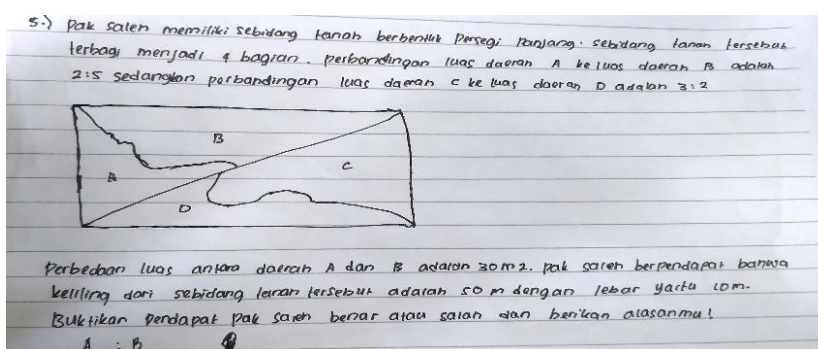 5.) Pak Saleh memiliki sebidang tanah berbentuk Persegi Panjang. sebidang tanah tersebut
terbagi menjadi 4 bagian. perbandingan luas daerah A ke luas daerah B adalah
2:5 sedangkan perbandingan luas daerah C ke luas daerah D adalah 3:2
B
A
C
D
Perbedaan luas antara daerah A dan B adalah 30m2. pak saleh berpendapat bahwa
keliling dari sebidang tanah tersebut adalah 50 m dengan lebar yaitu 10m.
Buktikan Pendapat pak saleh benar atau salah dan berikan alasanmu!
A : B